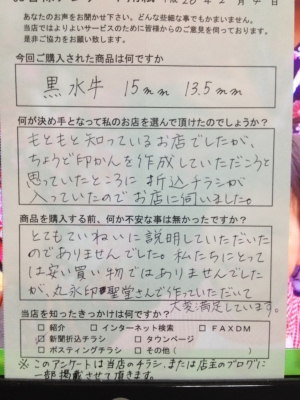 あなたのお声をお聞かせ下さい。どんな些細な事でもかまいません。
当店ではよりよいサービスのために皆様からのご意見を伺っております。
是非ご協力をお願い致します。
今回ご購入された商品は何ですか
黒水牛 15mm 13.5mm
何が決め手となって私のお店を選んで頂けたのでしょうか?
もともと知っているお店でしたが、
ちょうど印かんを作成していただこうと
思っていたところに折込チラシが
入っていたのでお店に伺いました。
商品を購入する前、何か不安な事は無かったですか?
とてもていねいに説明していただいた
のでありませんでした。私たちにとって
は安い買い物ではありませんでした
が、丸永印聖堂さんで作っていただいて
大変満足しています。
当店を知ったきっかけは何ですか?
□ 紹介 □ インターネット検索 □ FAXDM
☑ 新聞折込チラシ □ タウンページ
□ ポスティングチラシ □ その他( )
※このアンケートは当店のチラシ、または店主のブログに
一部掲載させて頂きます。